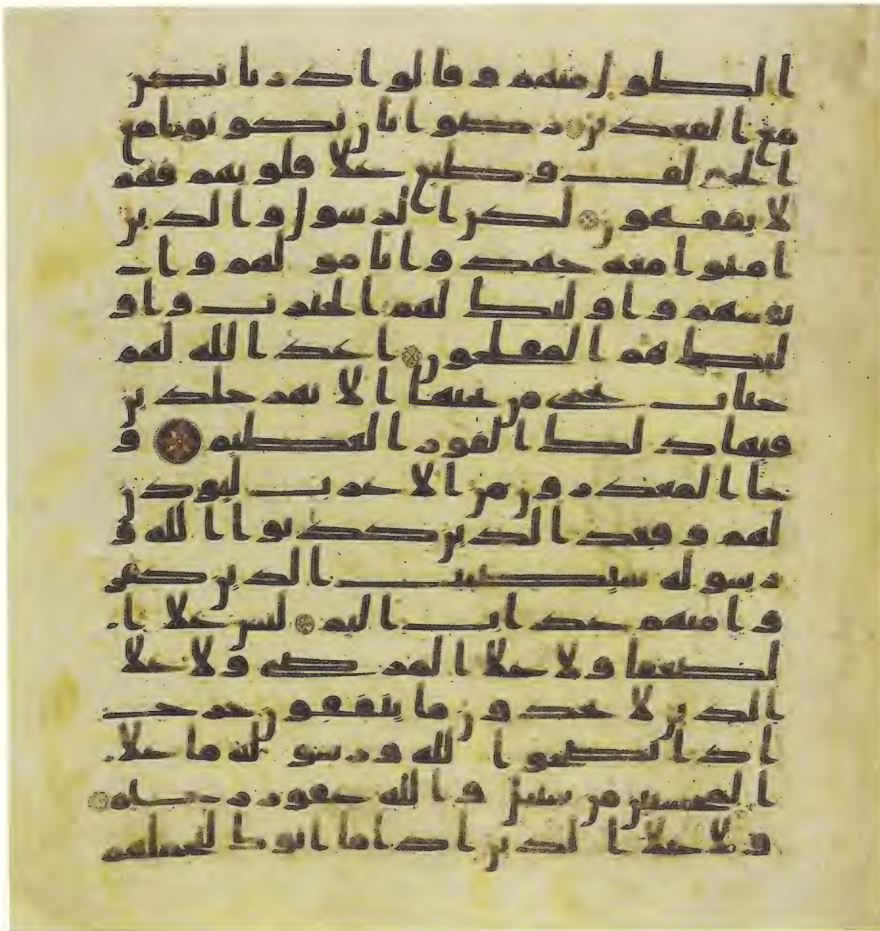 الطول منهم وقالوا ذرنا نكن
مع القعدين رضوا بان يكونوا مع
الخولف وطبع علا قلوبهم فهم
لا يفقهون لكن الرسول والذين
امنوا معه جهدوا باموالهم وا
نفسهم واولئك لهم الخيرت واو
لئك هم المفلحون اعد الله لهم
جنات تجري من تحتها الانهر خلدين
فيها ذلك الفوز العظيم و
جا المعذرون من الاعرب ليوذن
لهم وقعد الذين كذبوا الله و
رسوله سيصيب الذين كفر
وا منهم عذاب اليم ليس علا ا
لضعفا ولا علا المرضى ولا علا
الذين لا يجدون ما ينفقون حرج
اذا نصحوا لله ورسوله ما علا
المحسنين من سبيل والله غفور رحيم
ولا علا الذين اذا ما اتوك لتحملهم